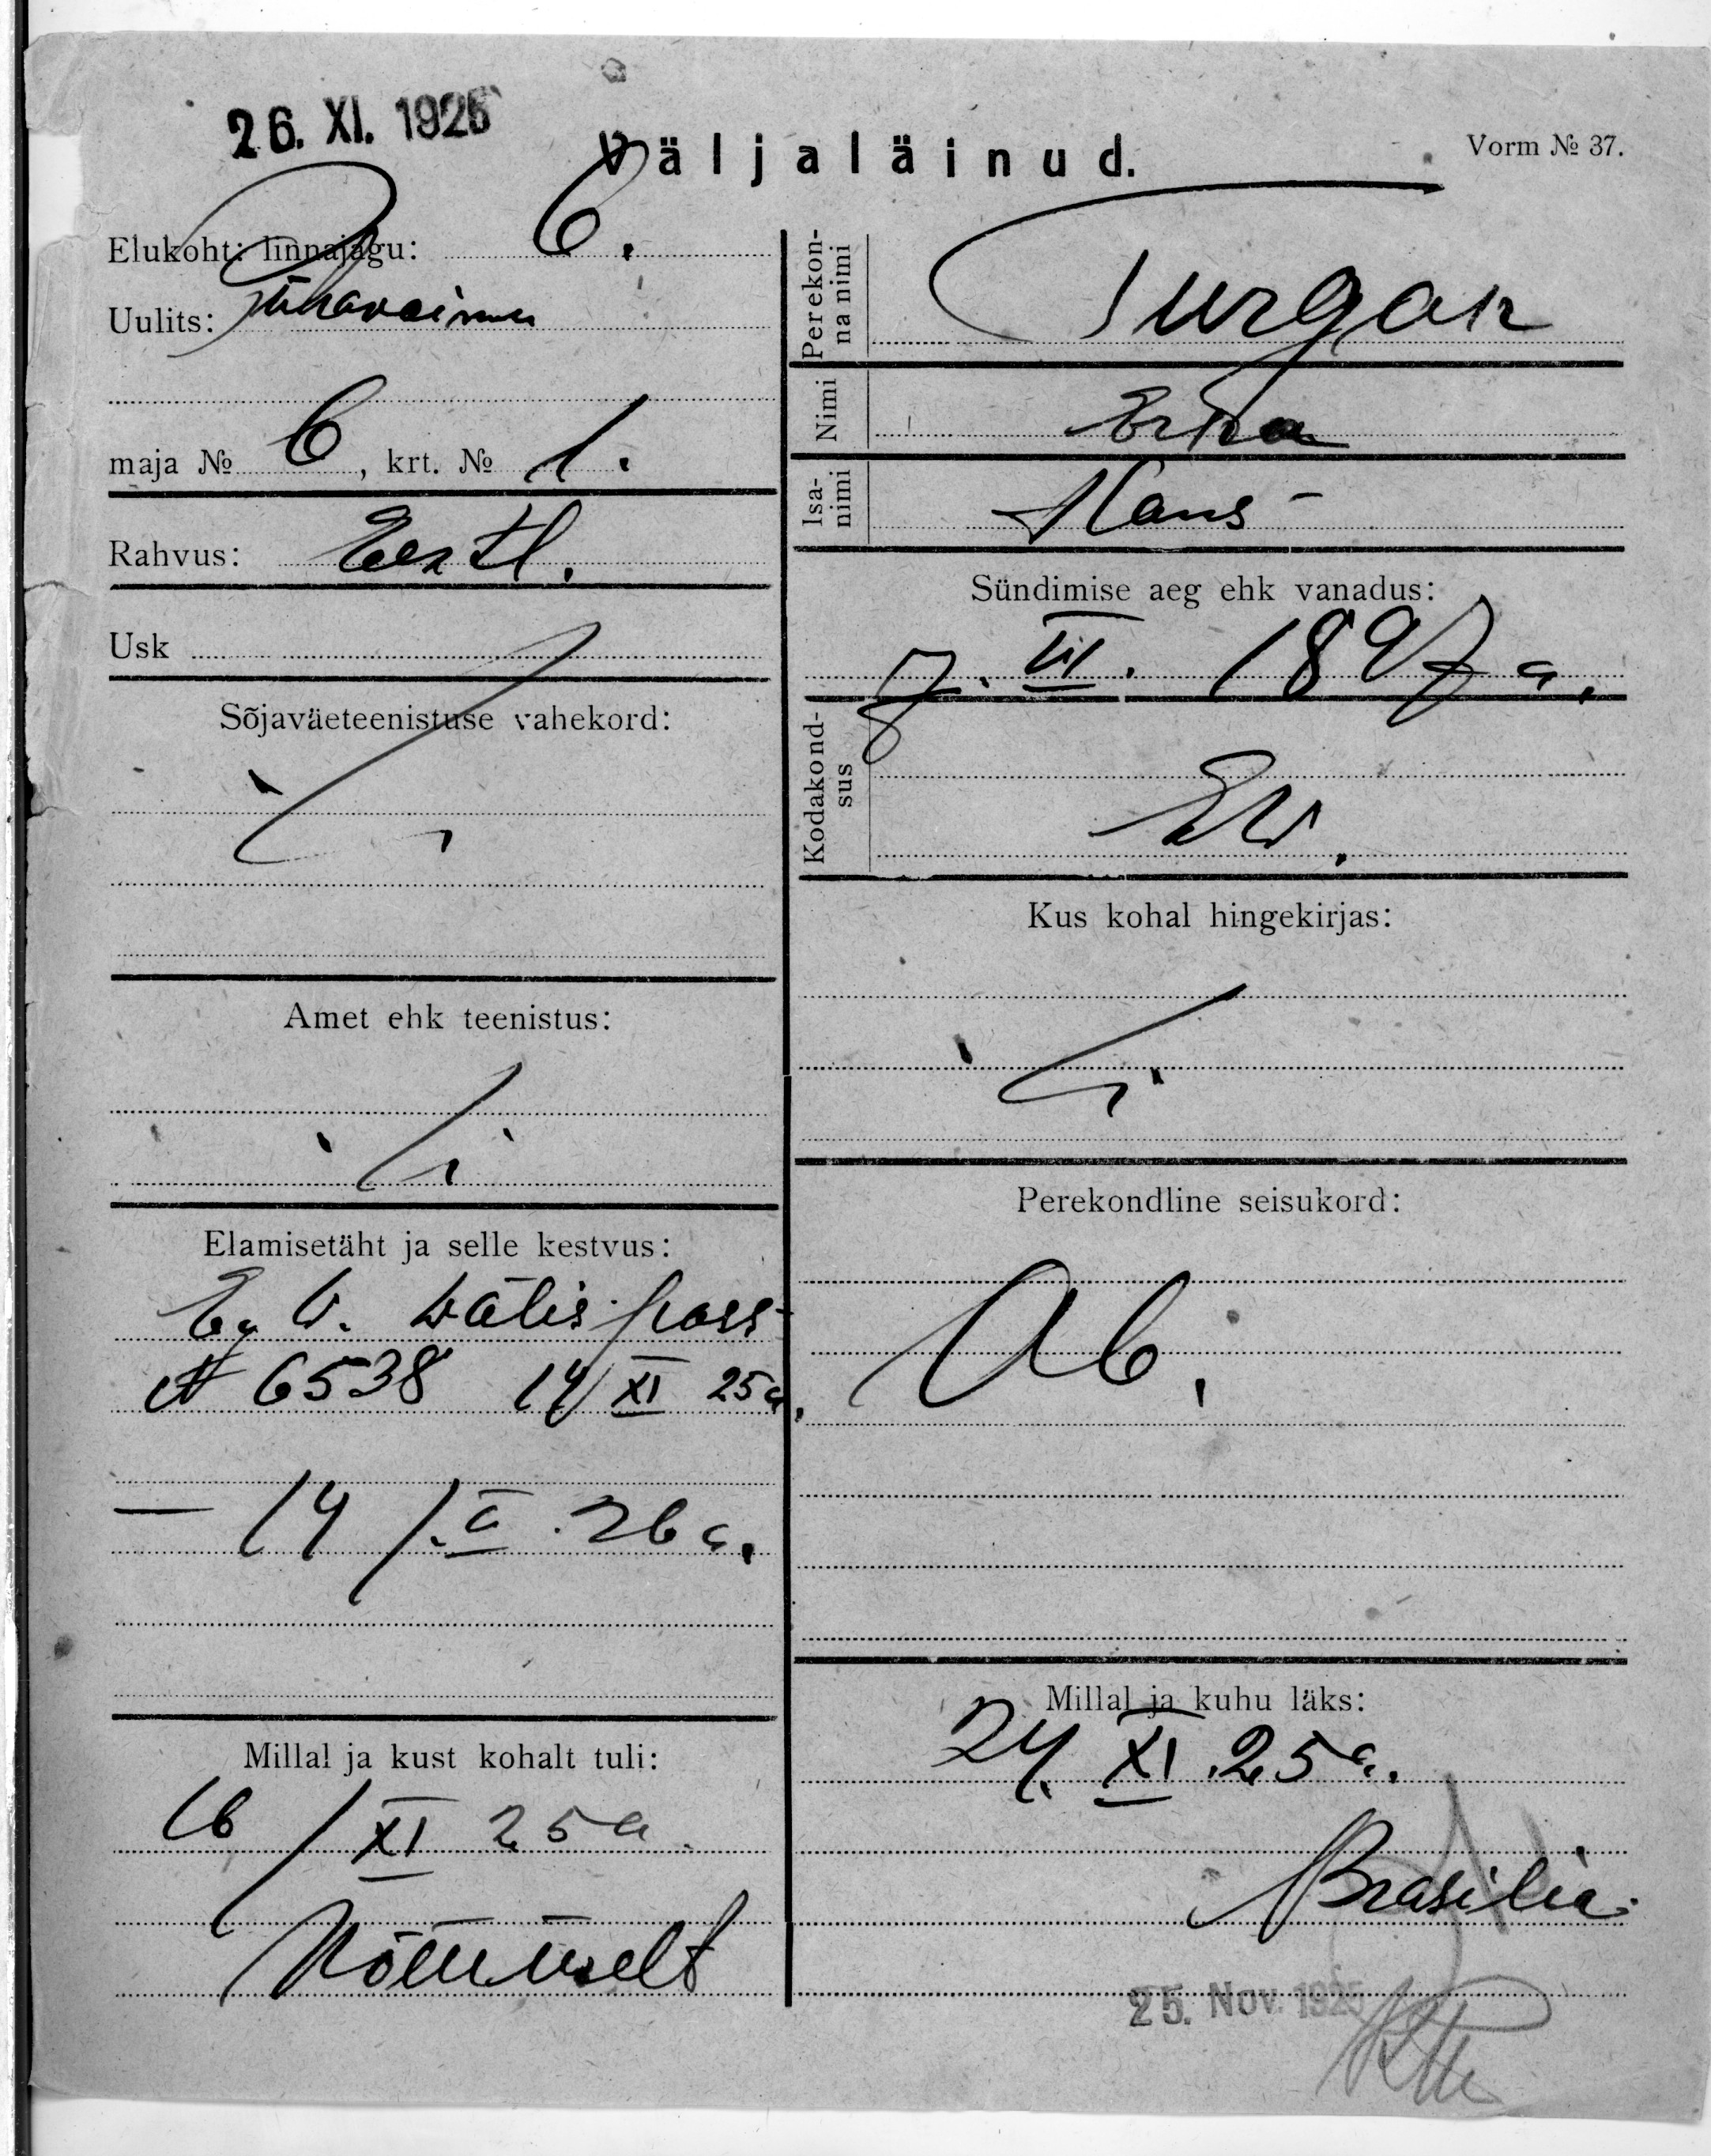 26. XI. 1925
Väljaläinud.
Vorm № 37.
Elukoht: linnajagu: 6.
Uulits: Pühavaimu
maja № 6, krt. № 1.
Rahvus: Eestl.
Usk
Sõjaväeteenistuse vahekord:
Amet ehk teenistus:
Elamisetäht ja selle kestvus:
E. W. wälispass
№ 6538 14/XI 25a.
— 14/ 26a.
Millal ja kust kohalt tuli:
16/XI 25a.
Nõmmelt
Perekonna nimi Turgan
Nimi Erna
Isanimi Hans
Sündimise aeg ehk vanadus:
7. 1897 a.
Kodakondsus
EW.
Kus kohal hingekirjas:
Perekondline seisukord:
Ab.
Millal ja kuhu läks:
24. XI. 25a.
Brasilia
25. Nov. 1925